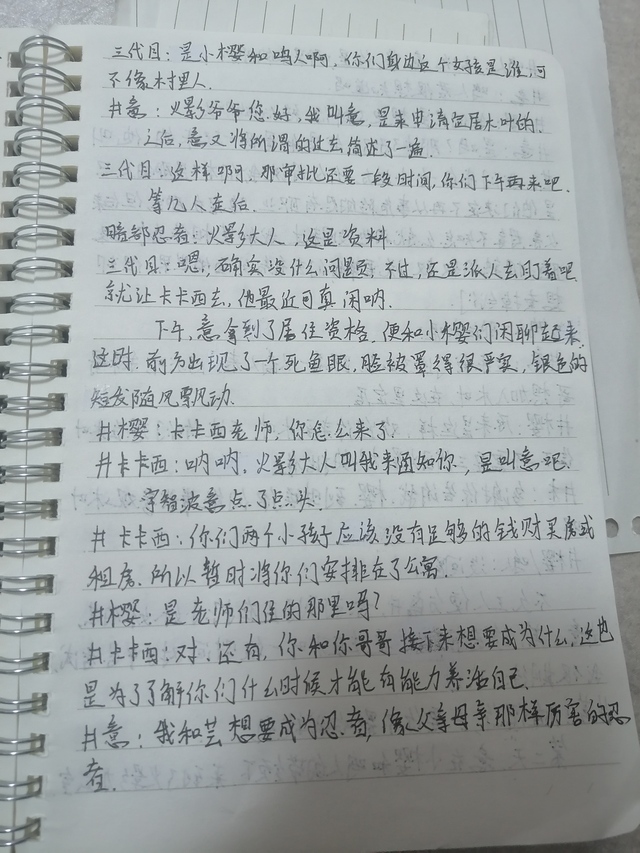 三代目：是小樱和鸣人啊，你们身边这个女孩是谁，可
不像村里人.
井意：火影爷爷您好，我叫意，是来申请定居木叶的.
之后，意又将所谓的过去简述了一遍.
三代目：这样啊，那审批还要一段时间，你们下午再来吧.
等几人走后.
暗部忍者：火影大人，这是资料.
三代目：嗯，确实没什么问题，不过，还是派人去盯着吧
就让卡卡西去，他最近可真闲呐.
下午，意拿到了居住资格，便和小樱们闲聊起来.
这时，前方出现了一个死鱼眼，脸被罩得很严实，银色的
短发随风飘动.
井樱：卡卡西老师，你怎么来了？
井卡卡西：呐呐，火影大人叫我来通知你，是叫意吧.
宇智波意点了点头.
井卡卡西：你们两个小孩子应该没有足够的钱财买房或
租房，所以暂时将你们安排在了公寓.
井樱：是老师们住的那里吗？
井卡卡西：对，还有，你和你哥哥接下来想要成为什么，这也
是为了了解你们什么时候才能有能力养活自己.
井意：我和芸想要成为忍者，像父亲母亲那样厉害的忍
者.